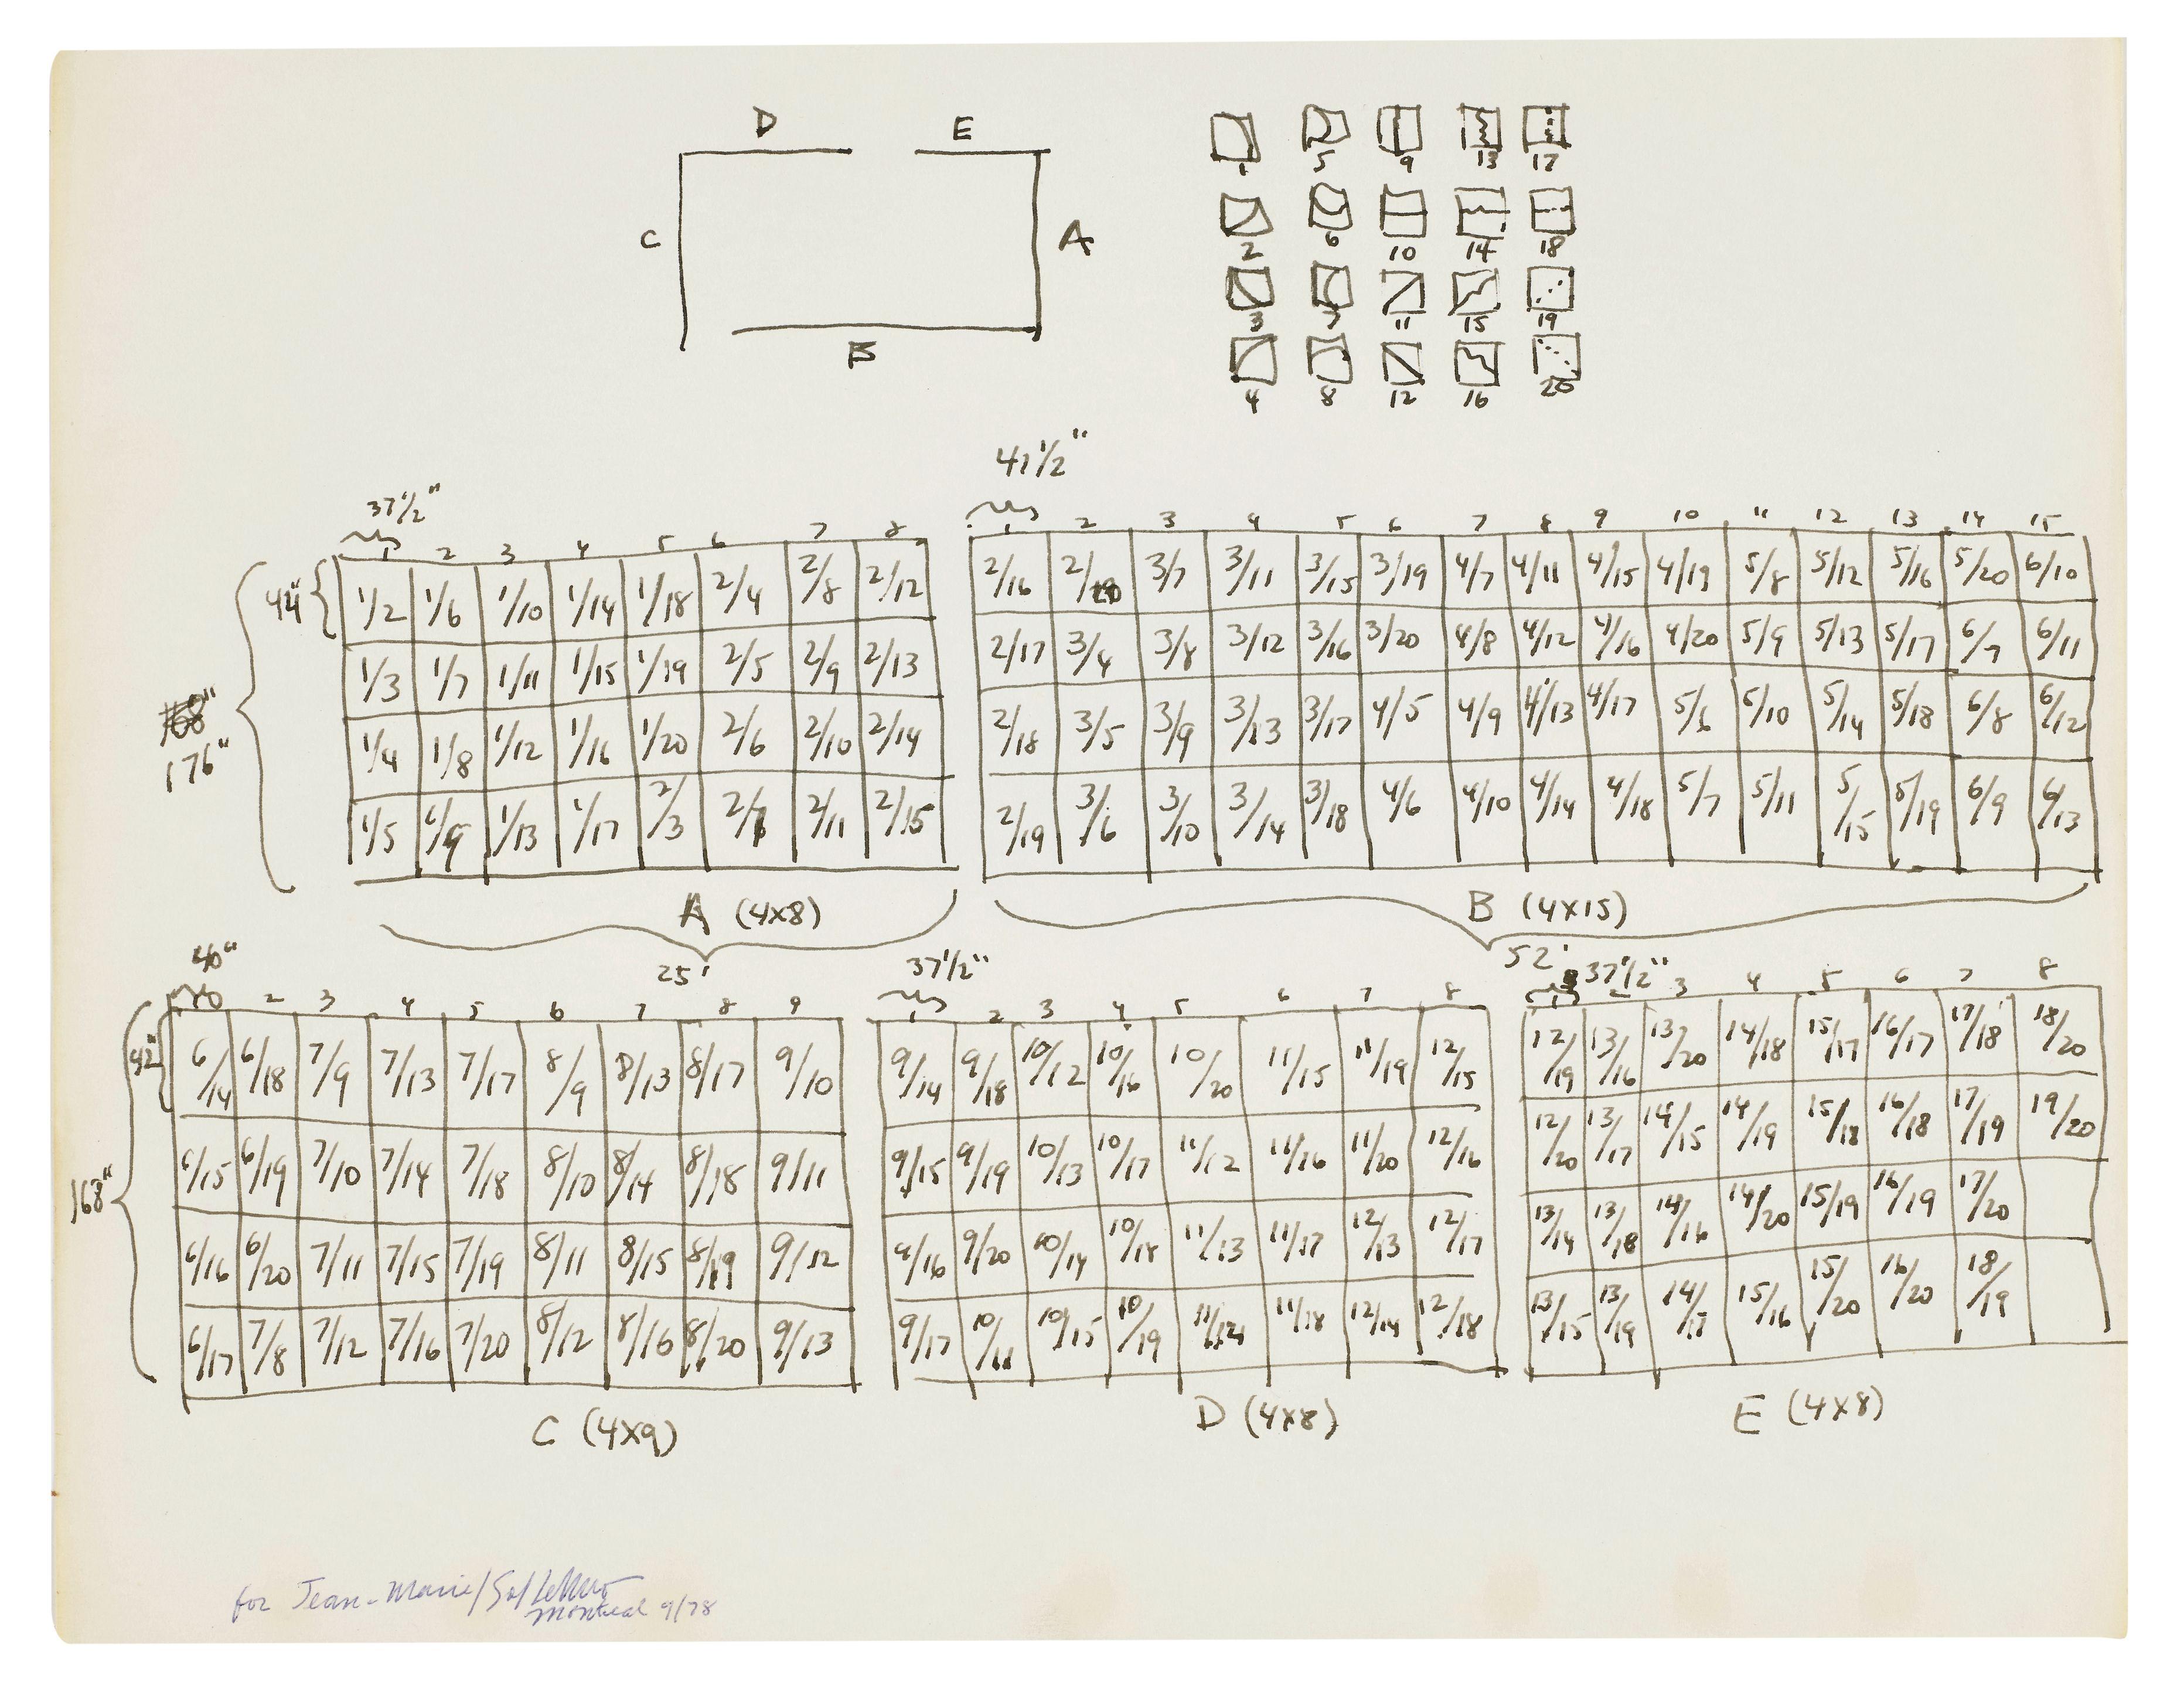 D E
C A
B
1 5 9 13 17
2 6 10 14 18
3 7 11 15 19
4 8 12 16 20
37½" 41½"
1 2 3 4 5 6 7 8 1 2 3 4 5 6 7 8 9 10 11 12 13 14 15
44" 1/2 1/6 1/10 1/14 1/18 2/4 2/8 2/12 2/16 2/20 3/7 3/11 3/15 3/19 4/7 4/11 4/15 4/19 5/8 5/12 5/16 5/20 6/10
1/3 1/7 1/11 1/15 1/19 2/5 2/9 2/13 2/17 3/4 3/8 3/12 3/16 3/20 4/8 4/12 4/16 4/20 5/9 5/13 5/17 6/7 6/11
168"
176" 1/4 1/8 1/12 1/16 1/20 2/6 2/10 2/14 2/18 3/5 3/9 3/13 3/17 4/5 4/9 4/13 4/17 5/6 5/10 5/14 5/18 6/8 6/12
1/5 1/9 1/13 1/17 2/3 2/7 2/11 2/15 2/19 3/6 3/10 3/14 3/18 4/6 4/10 4/14 4/18 5/7 5/11 5/15 5/19 6/9 6/13
A (4x8) B (4x15)
25' 52'
40" 37½" 37½"
2 3 4 5 6 7 8 9 1 2 3 4 5 6 7 8 1 2 3 4 5 6 7 8
42" 6/14 6/18 7/9 7/13 7/17 8/9 8/13 8/17 9/10 9/14 9/18 10/12 10/16 10/20 11/15 11/19 12/15 12/19 13/16 13/20 14/18 15/17 16/17 17/18 18/20
168" 6/15 6/19 7/10 7/14 7/18 8/10 8/14 8/18 9/11 9/15 9/19 10/13 10/17 11/12 11/16 11/20 12/16 12/20 13/17 14/15 14/19 15/18 16/18 17/19 19/20
6/16 6/20 7/11 7/15 7/19 8/11 8/15 8/19 9/12 9/16 9/20 10/14 10/18 11/13 11/17 12/13 12/17 13/14 13/18 14/16 14/20 15/19 16/19 17/20
6/17 7/8 7/12 7/16 7/20 8/12 8/16 8/20 9/13 9/17 10/11 10/15 10/19 11/14 11/18 12/14 12/18 13/15 13/19 14/17 15/16 15/20 16/20 18/19
C (4x9) D (4x8) E (4x8)
for Jean-Marie/Sol LeWitt
Montreal 9/78